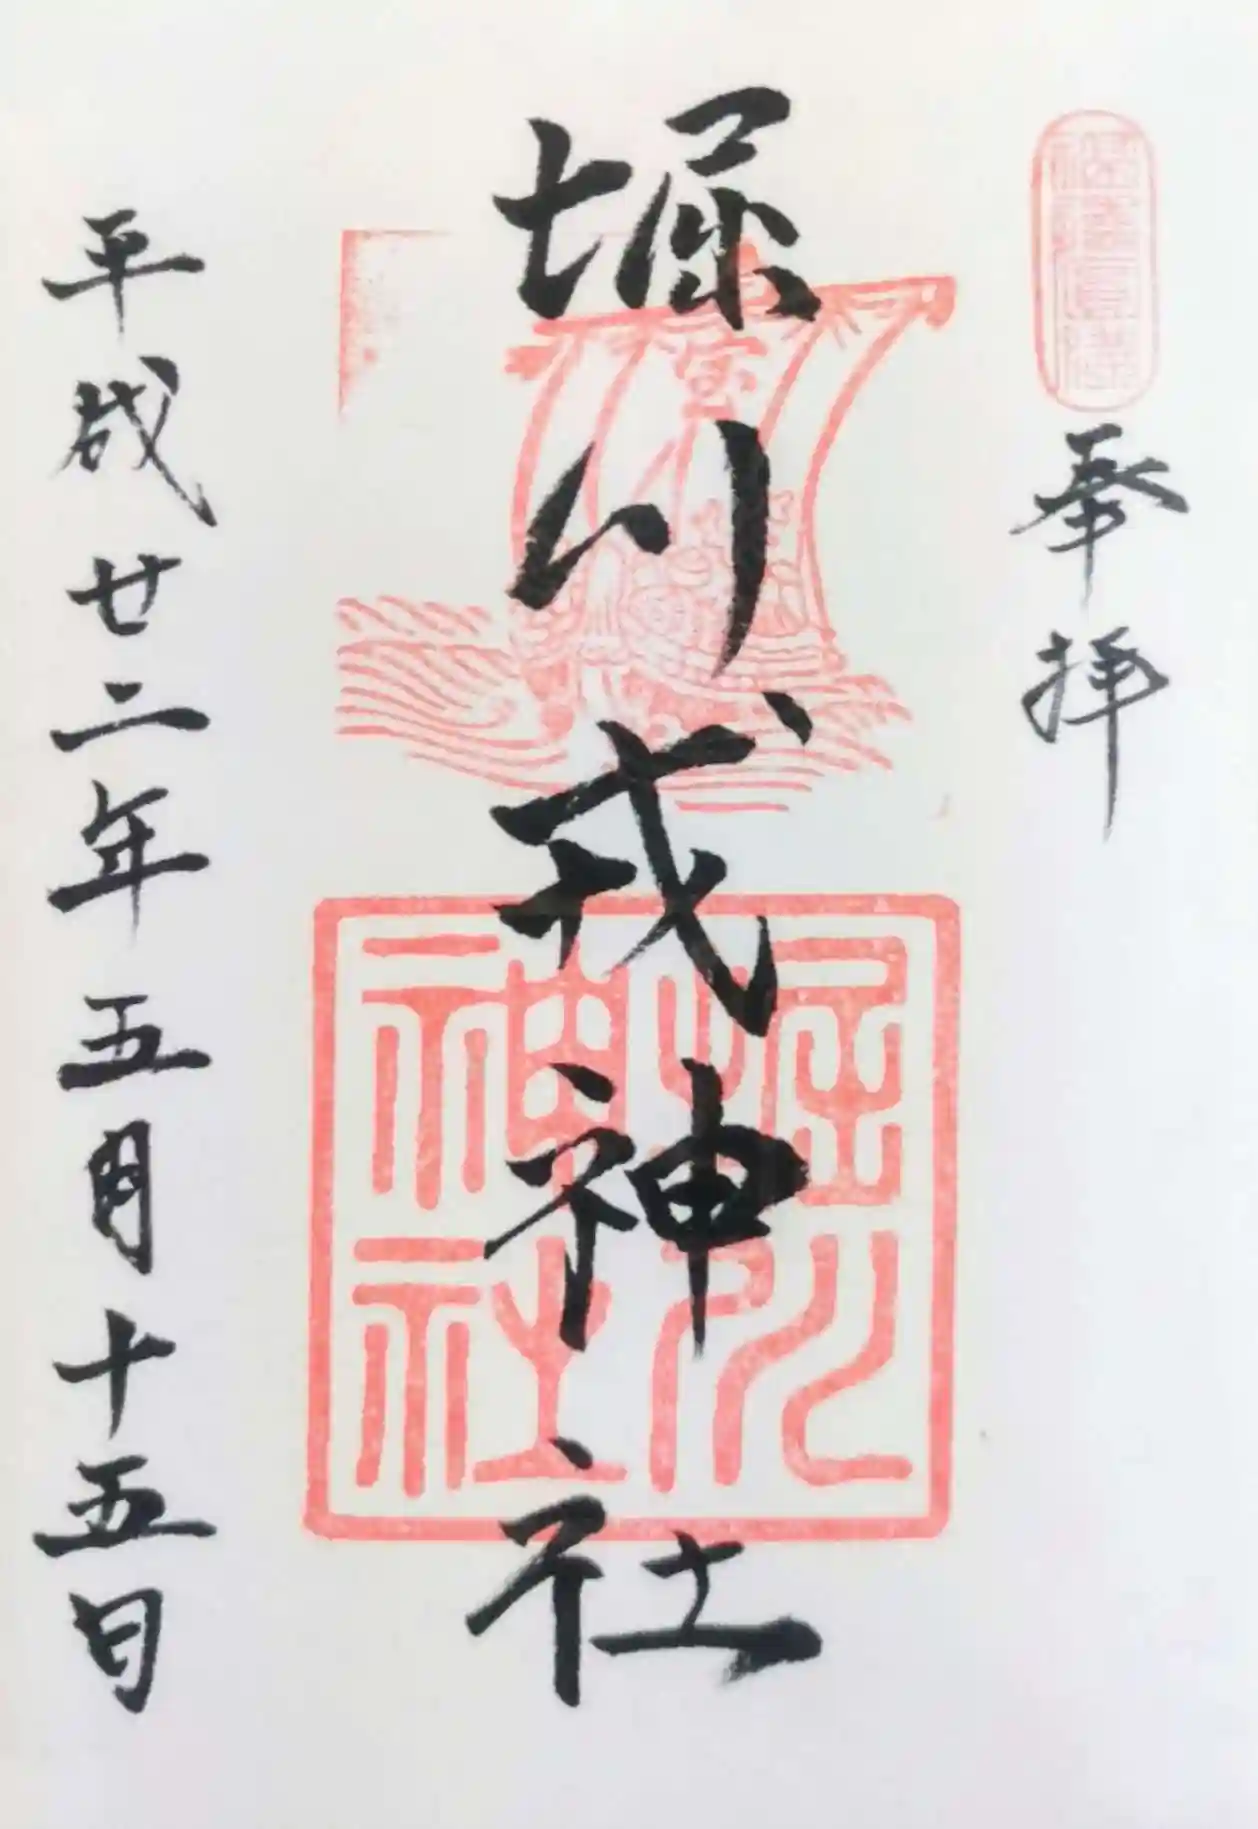 奉拝
堀川戎神社
堀川
神社
宝
平成廿二年五月十五日